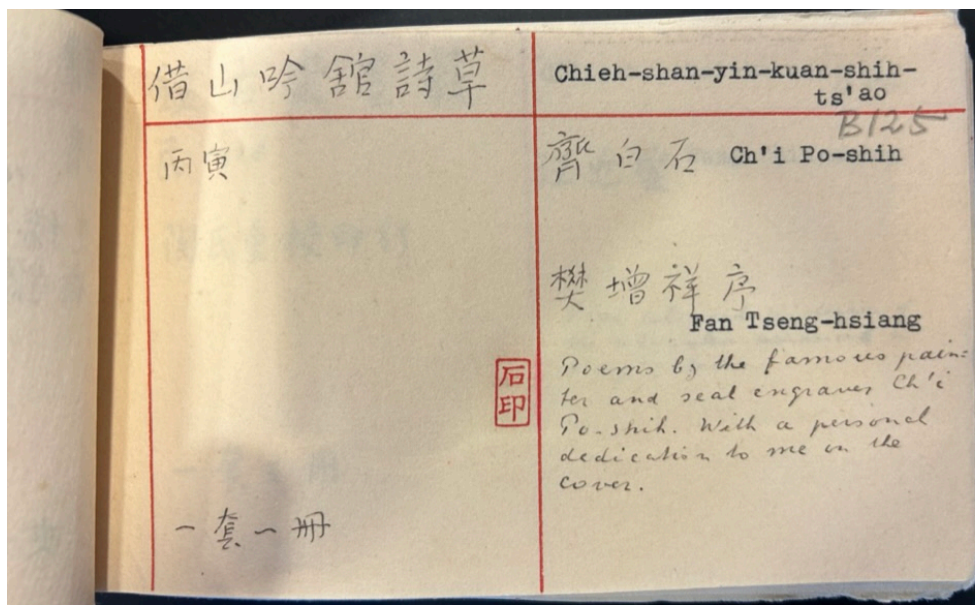 借山吟舘詩草
Chieh-shan-yin-kuan-shih-
ts'ao
B125
丙寅
齊白石 Ch'i Po-shih
樊增祥序
Fan Tseng-hsiang
石印
Poems by the famous pain-
ter and seal engraver Ch'i
Po-shih. With a personal
dedication to me on the
cover.
一套一冊